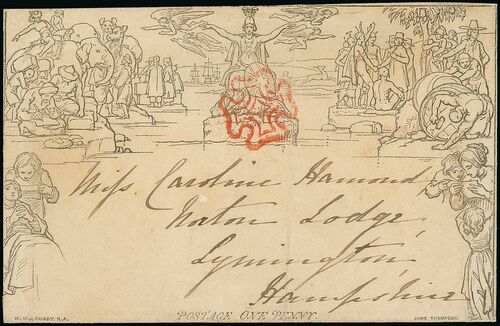 Miss Caroline Hamond,
Norton Lodge,
Lymington,
Hampshire
POSTAGE ONE PENNY.
W. MULREADY, R.A.
JOHN THOMPSON.